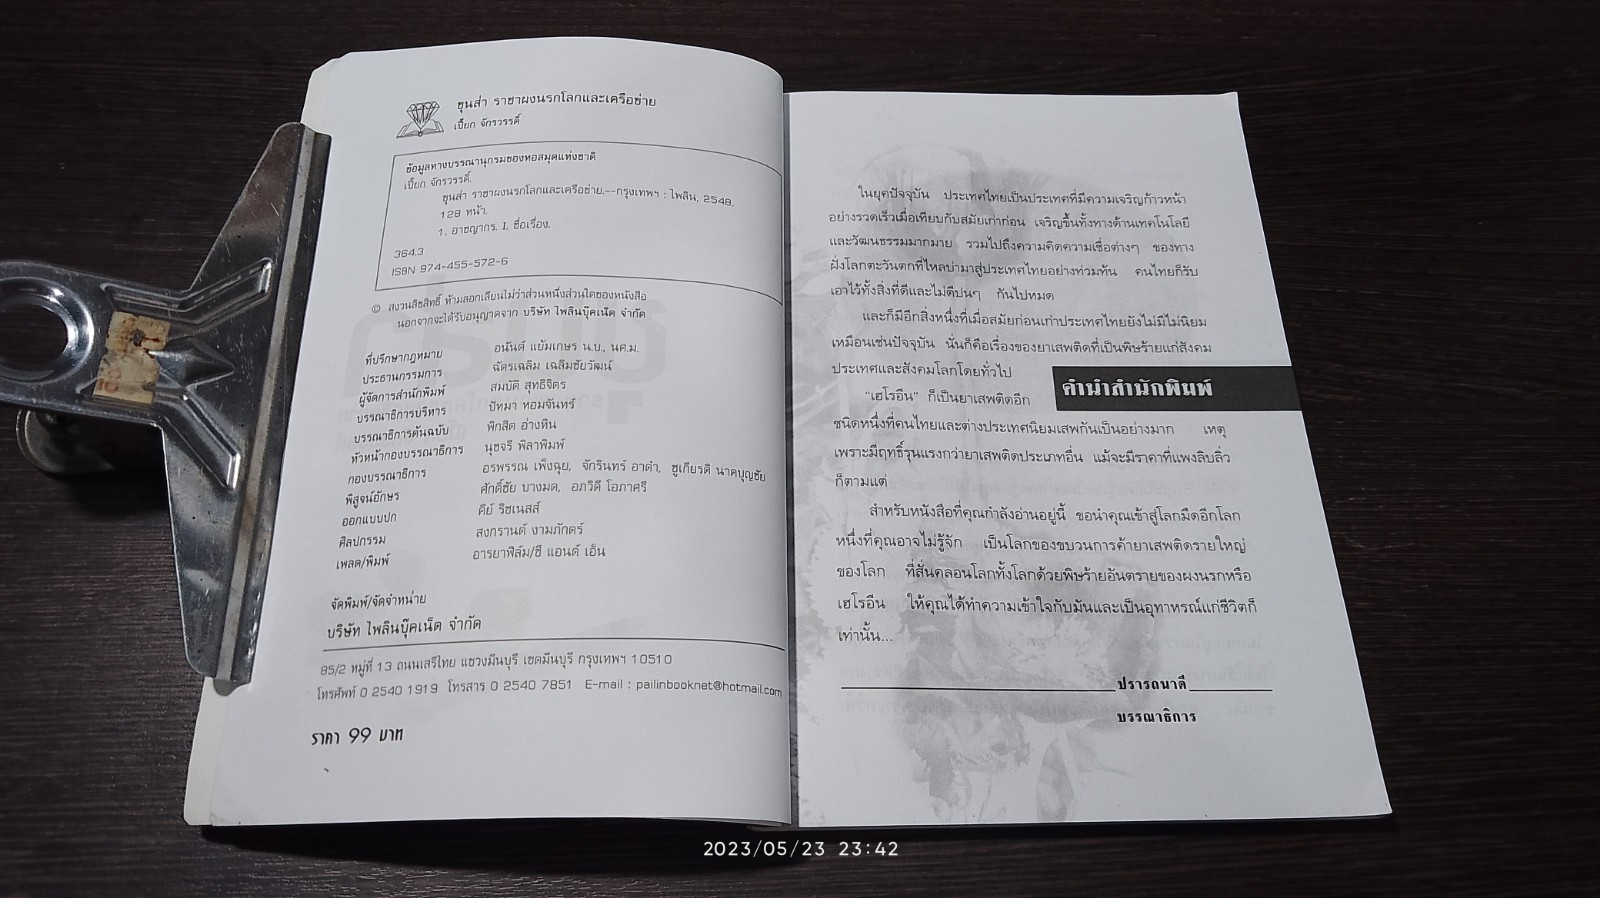 ขุนส่า ราชาผงนรกโลกและเครือข่าย
เบี้ยก จักรวรรดิ์
ข้อมูลทางบรรณานุกรมของหอสมุดแห่งชาติ
เบี้ยก จักรวรรดิ์.
ขุนส่า ราชาผงนรกโลกและเครือข่าย.--กรุงเทพฯ : ไพลิน, 2548.
128 หน้า.
1. อาชญากร. I. ชื่อเรื่อง.
364.3
ISBN 974-455-572-6
© สงวนลิขสิทธิ์ ห้ามลอกเลียนไม่ว่าส่วนหนึ่งส่วนใดของหนังสือ
นอกจากจะได้รับอนุญาตจาก บริษัท ไพลินบุ๊คเน็ต จำกัด
ที่ปรึกษากฎหมาย อนันต์ แย้มเกษร น.บ., นศ.ม.
ประธานกรรมการ ฉัตรเฉลิม เฉลิมชัยวัฒน์
ผู้จัดการสำนักพิมพ์ สมบัติ สุทธิจิตร
บรรณาธิการบริหาร ปัทมา หอมจันทร์
บรรณาธิการต้นฉบับ พิกสิต อ่างหิน
หัวหน้ากองบรรณาธิการ นุชจรี พิลาพิมพ์
กองบรรณาธิการ อรพรรณ เพ็งฉุย, จักรินทร์ อาดำ, ชูเกียรติ นาคบุญชัย
พิสูจน์อักษร ศักดิ์ชัย บางมด, อภวิดี โอภาศรี
ออกแบบปก คีย์ ริชเนสส์
ศิลปกรรม สงกรานต์ งามภักดร์
เพลต/พิมพ์ อารยาฟิล์ม/ซี แอนด์ เอ็น
จัดพิมพ์/จัดจำหน่าย
บริษัท ไพลินบุ๊คเน็ต จำกัด
85/2 หมู่ที่ 13 ถนนเสรีไทย แขวงมีนบุรี เขตมีนบุรี กรุงเทพฯ 10510
โทรศัพท์ 0 2540 1919 โทรสาร 0 2540 7851 E-mail : pailinbooknet@hotmail.com
ราคา 99 บาท
ในยุคปัจจุบัน ประเทศไทยเป็นประเทศที่มีความเจริญก้าวหน้า
อย่างรวดเร็วเมื่อเทียบกับสมัยเก่าก่อน เจริญขึ้นทั้งทางด้านเทคโนโลยี
และวัฒนธรรมมากมาย รวมไปถึงความคิดความเชื่อต่างๆ ของทาง
ฝั่งโลกตะวันตกที่ไหลบ่ามาสู่ประเทศไทยอย่างท่วมท้น คนไทยก็รับ
เอาไว้ทั้งสิ่งที่ดีและไม่ดีปนๆ กันไปหมด
และก็มีอีกสิ่งหนึ่งที่เมื่อสมัยก่อนเก่าประเทศไทยยังไม่มีไม่นิยม
เหมือนเช่นปัจจุบัน นั่นก็คือเรื่องของยาเสพติดที่เป็นพิษร้ายแก่สังคม
ประเทศและสังคมโลกโดยทั่วไป
คำนำสำนักพิมพ์
“เฮโรอีน” ก็เป็นยาเสพติดอีก
ชนิดหนึ่งที่คนไทยและต่างประเทศนิยมเสพกันเป็นอย่างมาก เหตุ
เพราะมีฤทธิ์รุนแรงกว่ายาเสพติดประเภทอื่น แม้จะมีราคาที่แพงลิบลิ่ว
ก็ตามแต่
สำหรับหนังสือที่คุณกำลังอ่านอยู่นี้ ขอนำคุณเข้าสู่โลกมืดอีกโลก
หนึ่งที่คุณอาจไม่รู้จัก เป็นโลกของขบวนการค้ายาเสพติดรายใหญ่
ของโลก ที่สั่นคลอนโลกทั้งโลกด้วยพิษร้ายอันตรายของผงนรกหรือ
เฮโรอีน ให้คุณได้ทำความเข้าใจกับมันและเป็นอุทาหรณ์แก่ชีวิตก็
เท่านั้น...
ปรารถนาดี
บรรณาธิการ
2023/05/23 23:42